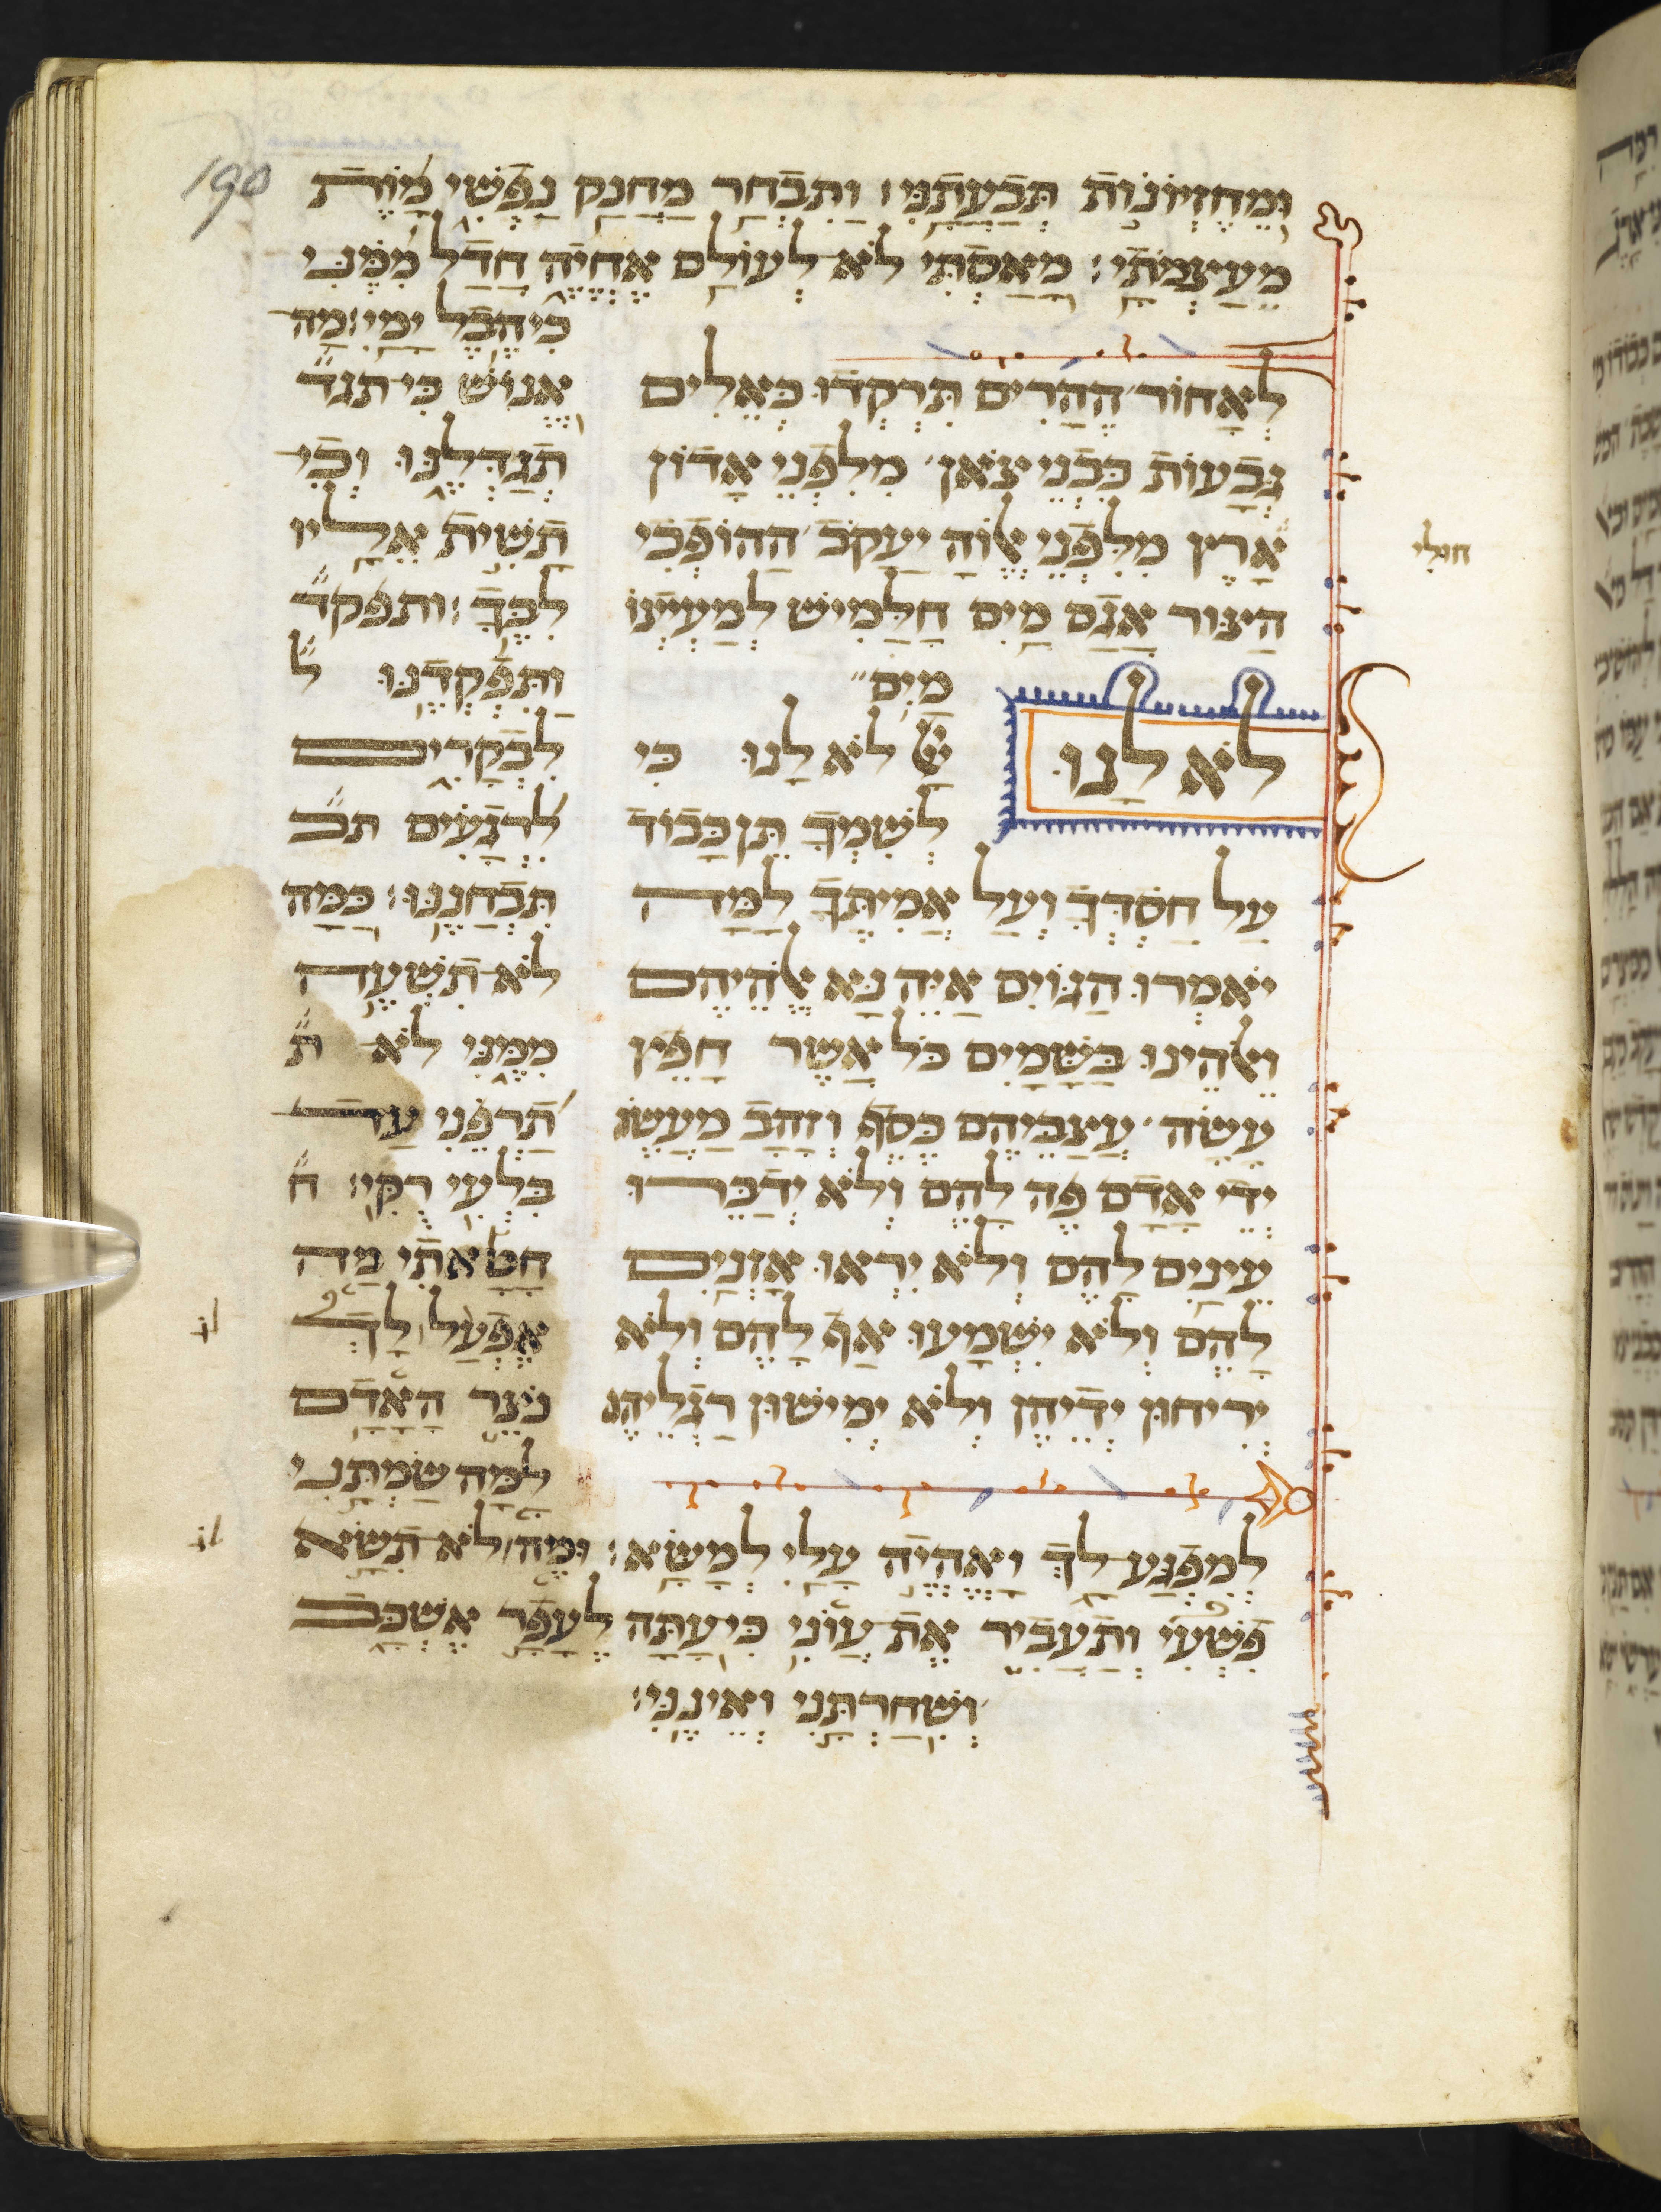 190
ומחזיונות תבעתני: ותבחר מחנק נפשי מות
מעצמתי: מאסתי לא לעולם אחיה חדל ממני
לאחור ההרים תרקדו כאלים
גבעות כבני צאן מלפני אדון
ארץ מלפני אלוה יעקב ההופכי
חולי
הצור אגם מים חלמיש למעינו
מים
לא לנו
לא לנו כי
לשמך תן כבוד
על חסדך ועל אמיתך למה
יאמרו הגוים איה נא אלהיהם
ואלהינו בשמים כל אשר חפץ
עשה עצביהם כסף וזהב מעשו
ידי אדם פה להם ולא ידברו
עינים להם ולא יראו אזנים
להם ולא ישמעו אף להם ולא
יריחון ידיהן ולא ימישון רגליהן
כי הבל ימי: מה
אנוש כי תגד״
תגדלנו וכי
תשית אליו
לבך: ותפקד״
ותפקדנו ל״
לבקרים
לרגעים תב״
תבחננו: כמה
לא תשעה
ממני לא ת״
תרפני עד
בלעי רקי: ח״
חטאתי מה
אפעל לך
נצר האדם
למה שמתני
למפגע לך ואהיה עלי למשא: ומה לא תשא
פשעי ותעביר את עוני כי עתה לעפר אשכב
ושחרתני ואינני: